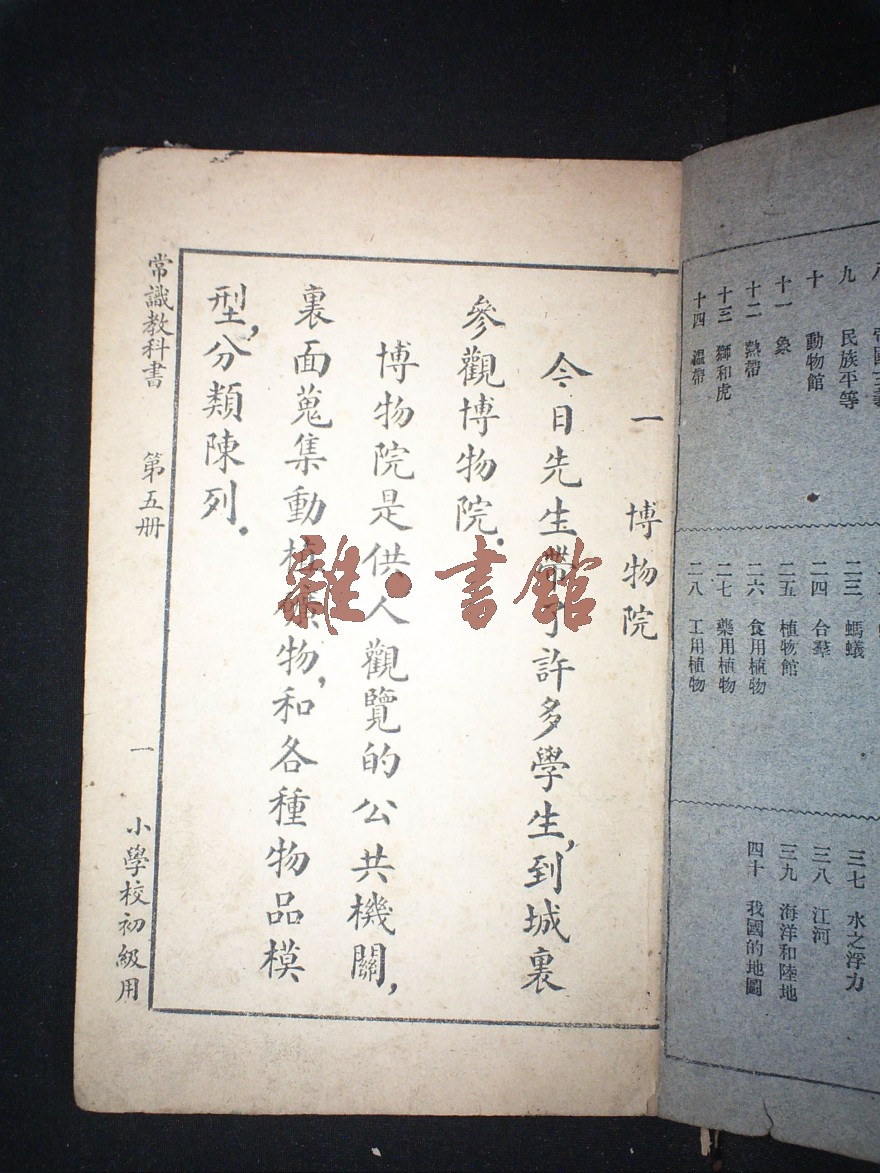 九 民族平等
十 動物館
十一 象
十二 熱帶
十三 獅和虎
十四 溫帶
二三 螞蟻
二四 合羣
二五 植物館
二六 食用植物
二七 藥用植物
二八 工用植物
三七 水之浮力
三八 江河
三九 海洋和陸地
四十 我國的地圖
一 博物院
今日先生帶了許多學生,到城裏
參觀博物院.
博物院是供人觀覽的公共機關,
裏面蒐集動植礦物,和各種物品模
型,分類陳列.
常識教科書 第五册 一 小學校初級用
雜·書館